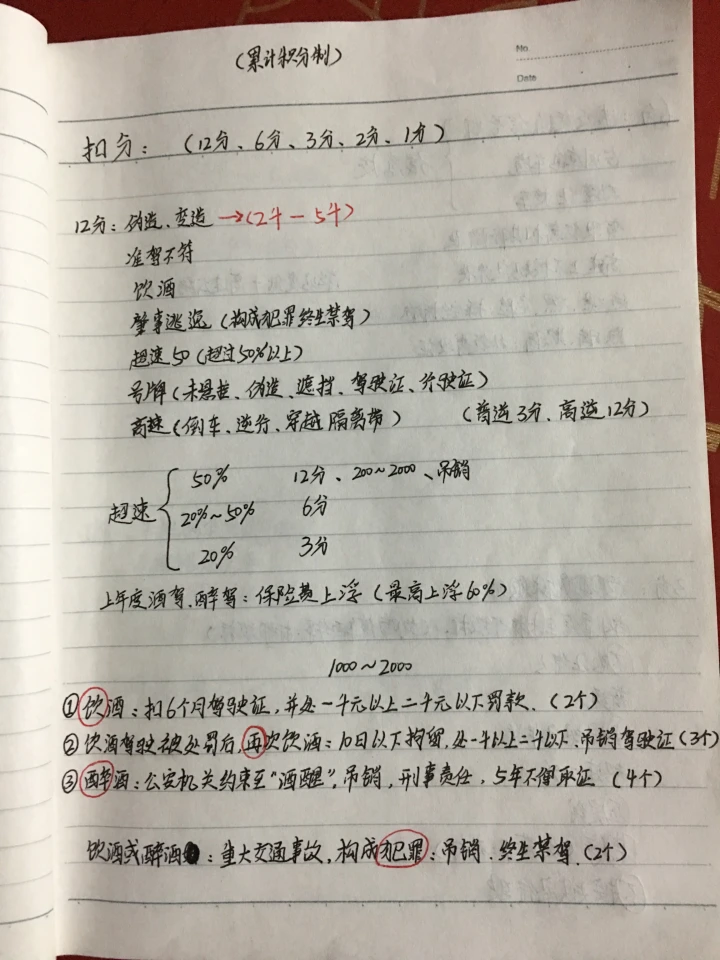 (累计积分制)
No
Date
扣分：(12分、6分、3分、2分、1分)
12分：伪造、变造 →(2千-5千)
准驾不符
饮酒
肇事逃逸(构成犯罪终生禁驾)
超速50(超过50%以上)
号牌(未悬挂、伪造、遮挡、驾驶证、行驶证)
高速(倒车、逆行、穿越隔离带) (普逆3分、高逆12分)
50% 12分、200~2000、吊销
超速 20%~50% 6分
20% 3分
上年度酒驾、醉驾：保险费上浮(最高上浮60%)
1000~2000
①饮酒：扣6个月驾驶证，并处一千元以上二千元以下罚款.(2个)
②饮酒驾驶被处罚后，再次饮酒：10日以下拘留，处一千以上二千以下、吊销驾驶证(3个)
③醉酒：公安机关约束至“酒醒”，吊销，刑事责任，5年不得取证 (4个)
饮酒或醉酒：重大交通事故，构成犯罪：吊销、终生禁驾.(2个)